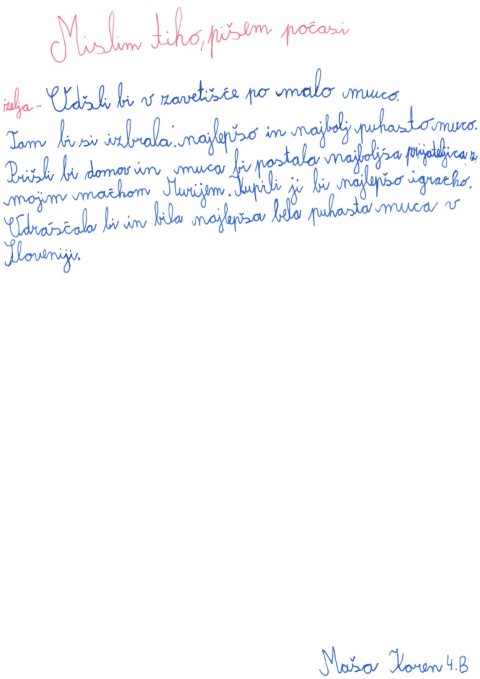 Mislim tiho, pišem počasi
želja - Odšli bi v zavetišče po malo muco.
Tam bi si izbrala najlepšo in najbolj puhasto muco.
Prišli bi domov in muca bi postala najboljša prijateljica z
mojim mačkom Murijem. Kupili ji bi najlepšo igračko.
Odraščala bi in bila najlepša bela puhasta muca v
Sloveniji.
Maša Koren 4.B